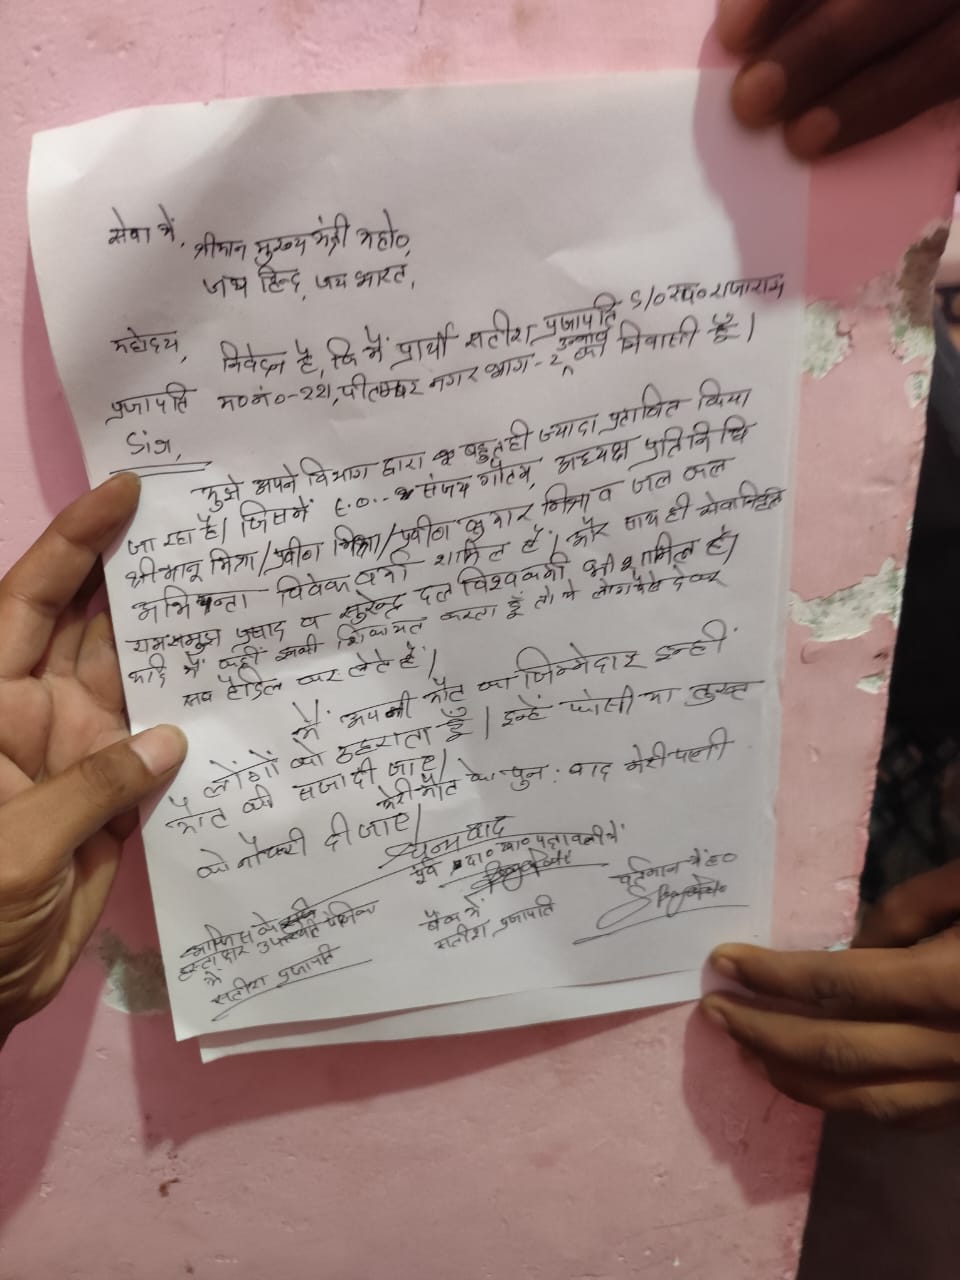 सेवा में,
श्रीमान मुख्य मंत्री महो०,
जय हिन्द, जय भारत,
महोदय,
निवेदन है, कि मैं प्रार्थी सतीश प्रजापति S/O स्व० राजाराम
प्रजापति म०नं०-221, पीताम्बर नगर भाग-2 उन्नाव का निवासी हूँ।
मुझे अपने विभाग द्वारा बहुत ही ज्यादा प्रताड़ित किया
जा रहा है। जिसमें ई.ओ.. संजय गौतम, अध्यक्ष प्रतिनिधि
श्री भानू मिश्रा/प्रवीण मिश्रा/प्रवीण कुमार मिश्रा व जल कल
अभियन्ता विवेक वर्मा शामिल हैं। और साथ ही सेवानिवृत्ति
रामसमुझ प्रसाद व सुरेन्द्र दत्त विश्वकर्मा भी शामिल हैं।
यदि मैं कहीं भी शिकायत करता हूँ तो ये लोग पैसे देकर
सब हैंडिल कर लेते हैं।
मैं अपनी मौत का जिम्मेदार इन्हीं
लोगों को ठहराता हूँ। इन्हें फाँसी या तुरन्त
मौत की सजा दी जाए।
मेरी मौत के पुन: बाद मेरी पत्नी
को नौकरी दी जाए।
धन्यवाद
पूर्व में
वर्तमान में ह०
आफिस के
हस्ताक्षर उपस्थिति पंजिका
में
सतीश प्रजापति
बैंक में
सतीश प्रजापति